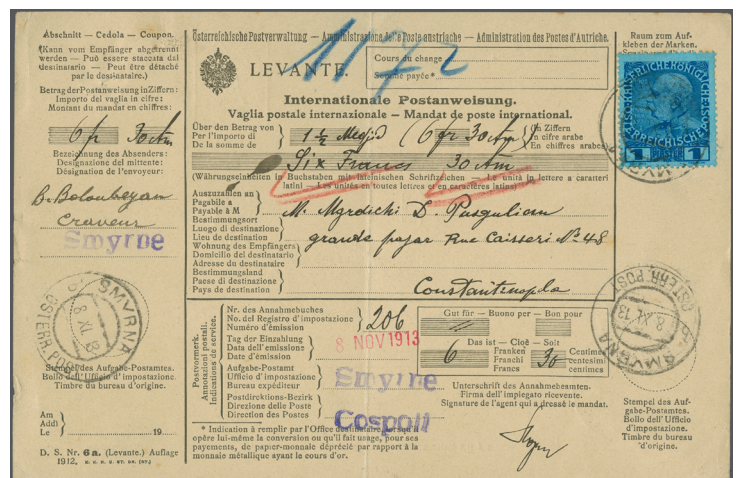 Abschnitt – Cedola – Coupon.
(Kann vom Empfänger abgetrennt
werden – Può essere staccata dal
destinatario – Peut être détaché
par le destinataire.)
Betrag der Postanweisung in Ziffern:
Importo del vaglia in cifre:
Montant du mandat en chiffres:
6 fr 30 ctm
Bezeichnung des Absenders:
Designazione del mittente:
Désignation de l'envoyeur:
B. Beloubeyan
Graveur
Smyrne
SMYRNA
8 XI. 13
ÖSTERR. POST
Stempel des Aufgabe-Postamtes.
Bollo dell'Ufficio d'impostazione.
Timbre du bureau d'origine.
Am
Addì
Le
19
D. S. Nr. 6a. (Levante.) Auflage
1912.
Österreichische Postverwaltung – Amministrazione delle Poste austriache – Administration des Postes d'Autriche.
1172
LEVANTE.
Cours du change
Somme payée*
Internationale Postanweisung.
Vaglia postale internazionale – Mandat de poste international.
Über den Betrag von
Per l'importo di
De la somme de
1 ½ Medjid (6 fr 30 ctm)
(In Ziffern
In cifre
En chiffres arabes)
Six Francs 30 ctm
(Währungseinheiten in Buchstaben mit lateinischen Schriftzeichen – Le unità in lettere a caratteri
latini – Les unités en toutes lettres et en caractères latins)
Auszuzahlen an
Pagabile a
Payable à M
M. Mgrdichi D. Pasgulian
Bestimmungsort
Luogo di destinazione
Lieu de destination
Wohnung des Empfängers
Domicilio del destinatario
Adresse du destinataire
grande pazar Rue Caisseri No 48
Bestimmungsland
Paese di destinazione
Pays de destination
Constantinople
Postvormerk.
Annotazioni postali.
Indications de service.
Nr. des Annahmebuches
No. del Registro d'impostazione
Numéro d'émission
206
Tag der Einzahlung
Data dell'emissione
Date d'émission
8 NOV 1913
Aufgabe-Postamt
Ufficio d'impostazione
Bureau expéditeur
Smyrne
Postdirektions-Bezirk
Direzione delle Poste
Direction des Postes
Cospoli
* Indication à remplir par l'Office destinataire, lorsqu'il
opère lui-même la conversion ou qu'il fait usage, pour ses
payements, de papier-monnaie déprécié par rapport à la
monnaie métallique ayant le cours d'or.
Gut für – Buono per – Bon pour
Das ist – Cioè – Soit
6
Franken
Franchi
Francs
30
Centimes
Centesimi
centimes
Unterschrift des Annahmebeamten.
Firma dell'impiegato ricevente.
Signature de l'agent qui a dressé le mandat.
Raum zum Auf-
kleben der Marken.
1 PIASTER 1
SMYRNA
SMYRNA
8. XI. 13
ÖSTERR. POST
Stempel des Auf-
gabe-Postamtes.
Bollo dell'Ufficio
d'impostazione.
Timbre du bureau
d'origine.